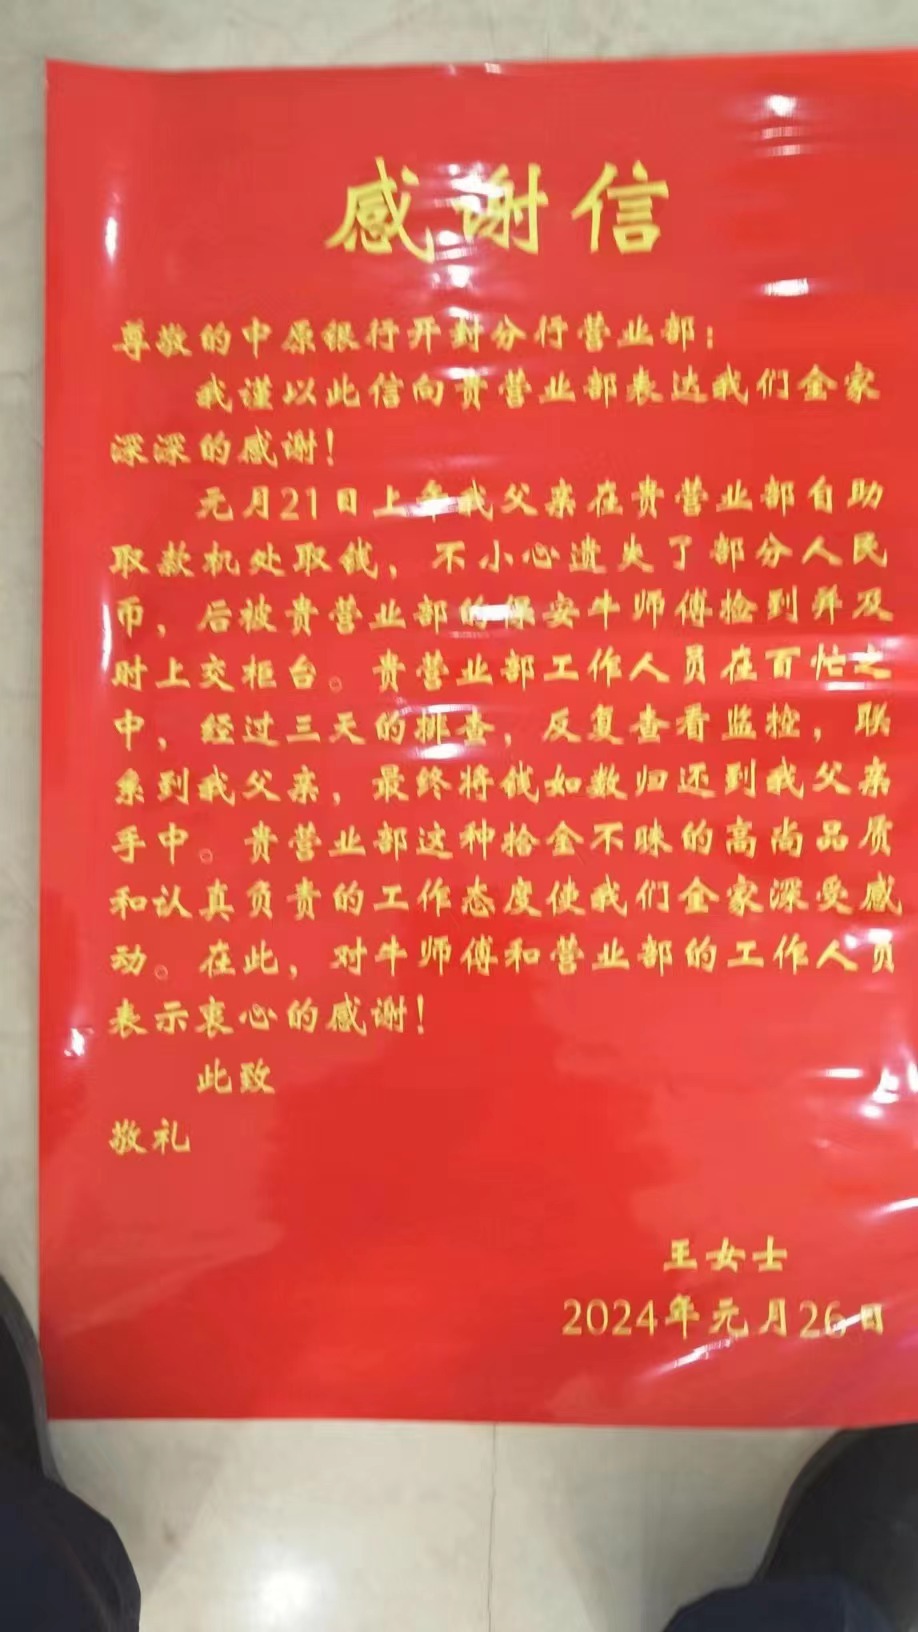 感谢信
尊敬的中原银行开封分行营业部：
我谨以此信向贵营业部表达我们全家
深深的感谢！
元月21日上午我父亲在贵营业部自助
取款机处取钱，不小心遗失了部分人民
币，后被贵营业部的保安牛师傅捡到并及
时上交柜台。贵营业部工作人员在百忙之
中，经过三天的排查，反复查看监控，联
系到我父亲，最终将钱如数归还到我父亲
手中。贵营业部这种拾金不昧的高尚品质
和认真负责的工作态度使我们全家深受感
动。在此，对牛师傅和营业部的工作人员
表示衷心的感谢！
此致
敬礼
王女士
2024年元月26日